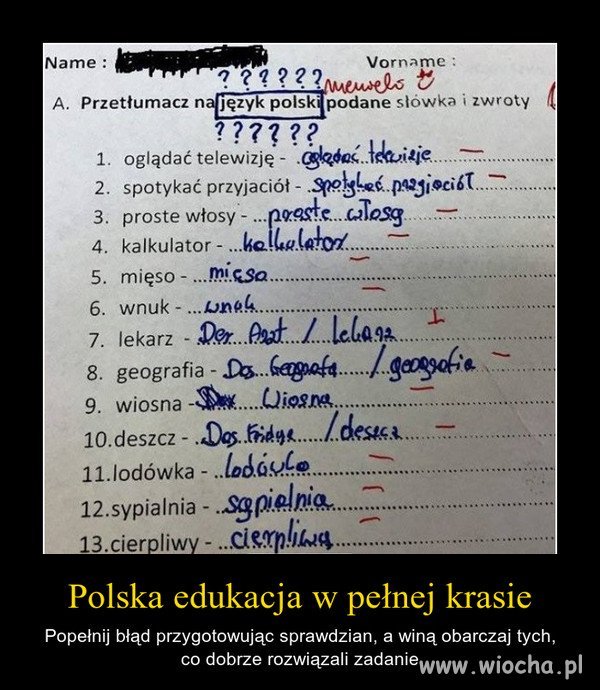 Name : Vorname :
? ? ? ? ? ?
A. Przetłumacz na język polski podane słówka i zwroty
? ? ? ? ? ?
1. oglądać telewizję - oglądać telewizje
2. spotykać przyjaciół - spotykać przyjaciół
3. proste włosy - proste włosy
4. kalkulator - kalkulator
5. mięso - mięso
6. wnuk - wnuk
7. lekarz - Der Arzt / lekarz
8. geografia - Das / geografia
9. wiosna - Wiosna
10.deszcz - Das / deszcz
11.lodówka - lodówka
12.sypialnia - sypialnia
13.cierpliwy - cierpliwy
Polska edukacja w pełnej krasie
Popełnij błąd przygotowując sprawdzian, a winą obarczaj tych,
co dobrze rozwiązali zadanie
www.wiocha.pl